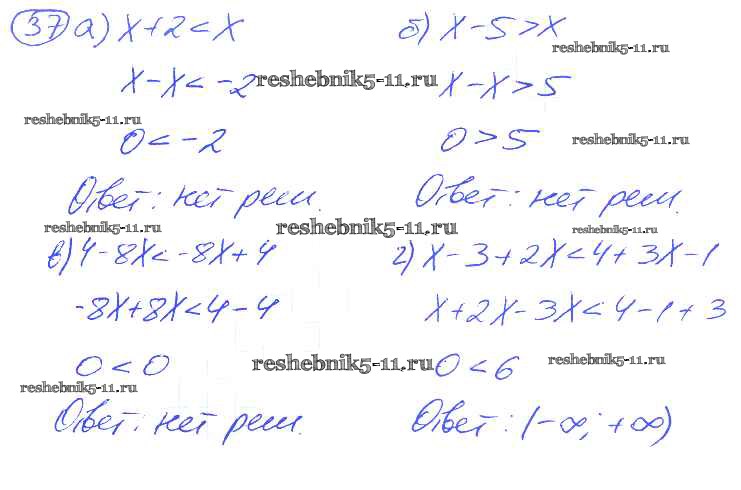 37 а) x+2<x б) x-5>x
reshebnik5-11.ru
x-x<-2 reshebnik5-11.ru x-x>5
reshebnik5-11.ru
0<-2 0>5 reshebnik5-11.ru
Ответ: нет реш. Ответ: нет реш.
reshebnik5-11.ru reshebnik5-11.ru reshebnik5-11.ru
в) 4-8x<-8x+4 г) x-3+2x<4+3x-1
-8x+8x<4-4 x+2x-3x<4-1+3
0<0 reshebnik5-11.ru 0<6 reshebnik5-11.ru
reshebnik5-11.ru
Ответ: нет реш. Ответ: (-∞; +∞)